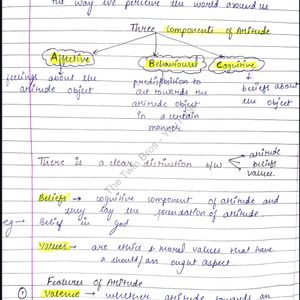 the way we perceive the world around us
Three Components of Attitude
Affective Behavioural Cognitive
feelings about the predisposition to beliefs about
attitude object act towards the the object
attitude object
in a certain
manner
There is a clear distinction b/w attitude
beliefs
values.
Beliefs - cognitive component of attitude and
they lay the foundation of attitude
eg - Belief in god
Values - are ethics & moral values that have
a should/an ought aspect
Features of Attitude
① Valence - whether attitude towards an
The Twin Bros